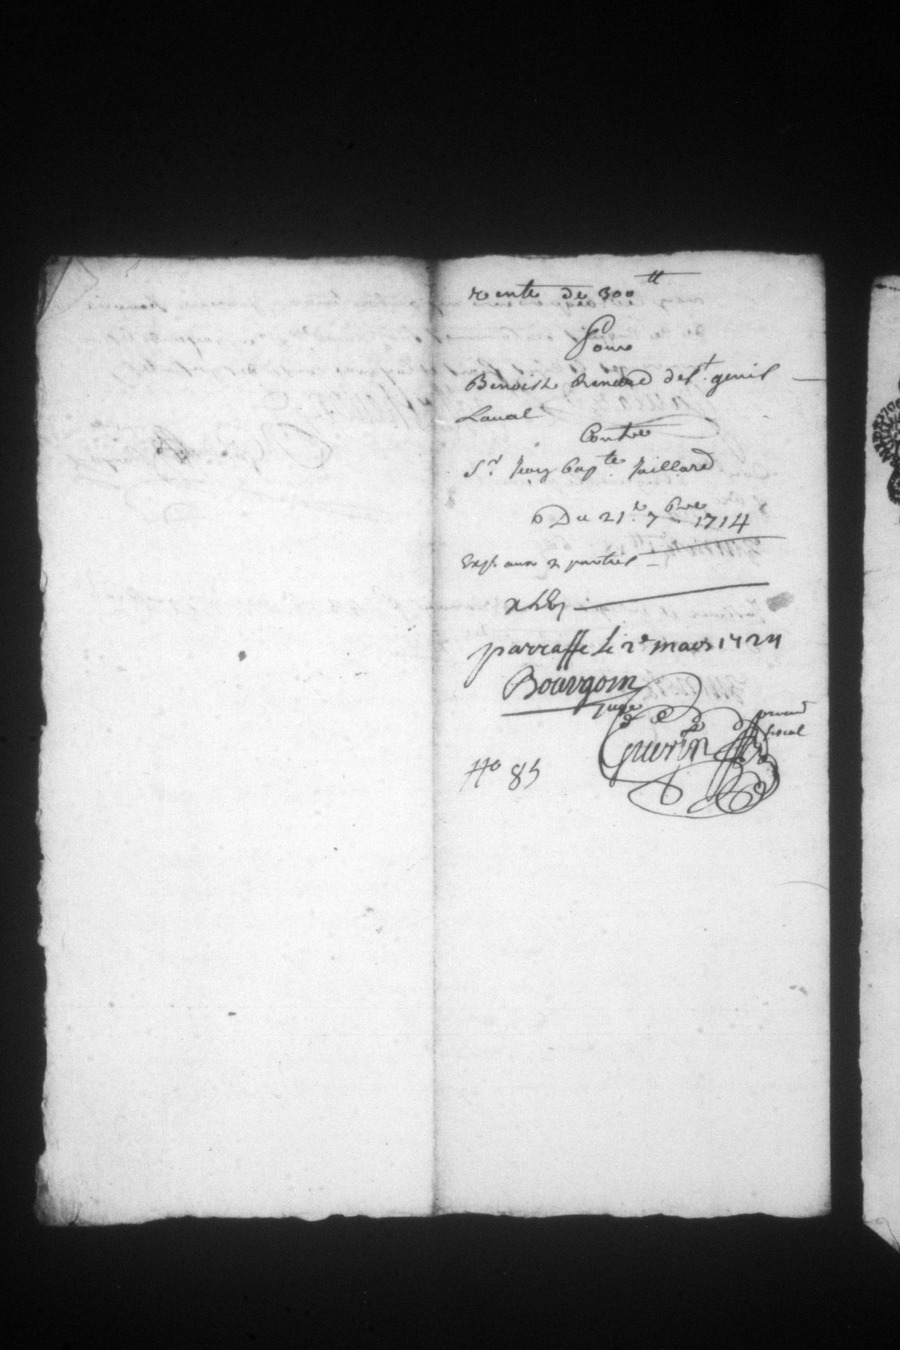 rente de 300tt
Pour
Benoist Renard de St. genis
Laual
Contre
Sr. Capte. Paillard
Du 21e. 7bre 1714
Exp. aux 2 parties
parraffe le 2e mars 1724
Bourgoin
juge
Guerin
fiscal
No 85